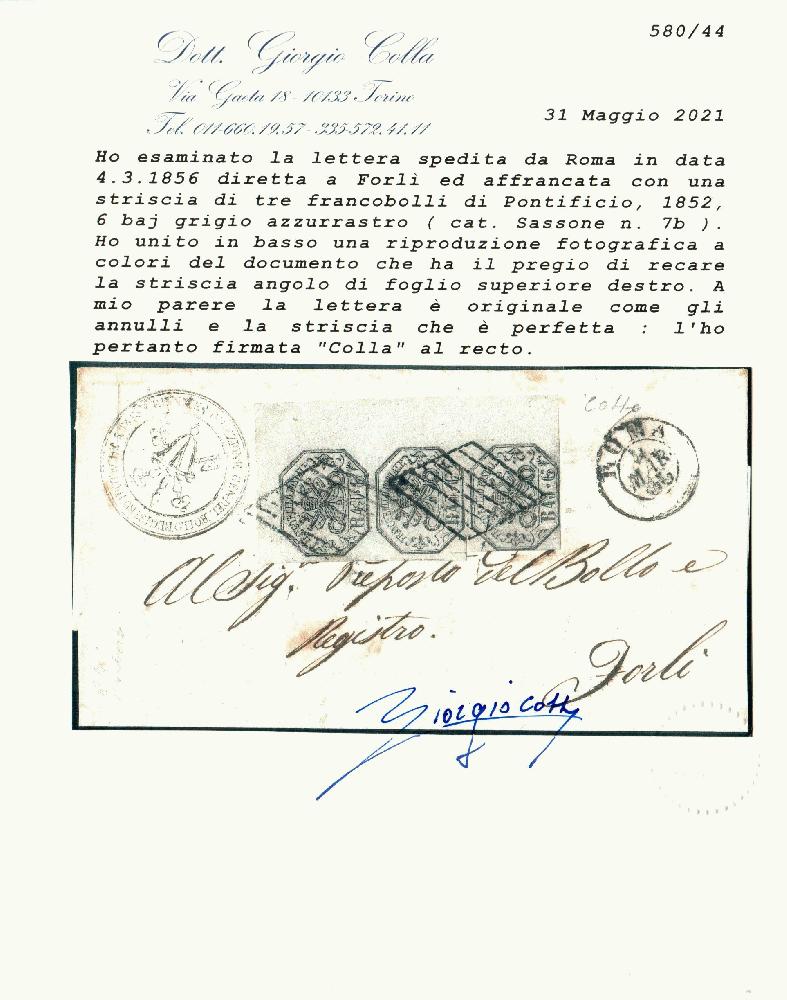 580/44
Dott. Giorgio Colla
Via Gaeta 18 - 10133 Torino
Tel. 011-660.19.57 - 335-572.41.11
31 Maggio 2021
Ho esaminato la lettera spedita da Roma in data
4.3.1856 diretta a Forlì ed affrancata con una
striscia di tre francobolli di Pontificio, 1852,
6 baj grigio azzurrastro ( cat. Sassone n. 7b ).
Ho unito in basso una riproduzione fotografica a
colori del documento che ha il pregio di recare
la striscia angolo di foglio superiore destro. A
mio parere la lettera è originale come gli
annulli e la striscia che è perfetta : l'ho
pertanto firmata "Colla" al recto.
Colla
ROMA
MAR
BAJ. 6
Al Sig.r Preposto del Bollo e
Registro.
Forlì
Giorgio Colla